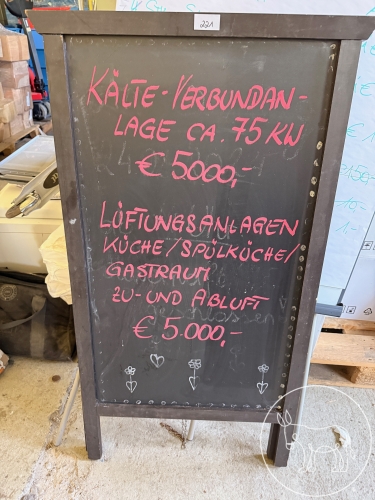 221
KÄLTE-VERBUNDAN-
LAGE CA. 75 KW
€ 5000,-
LÜFTUNGSANLAGEN
KÜCHE/SPÜLKÜCHE/
GASTRAUM
ZU- UND ABLUFT
€ 5.000,-